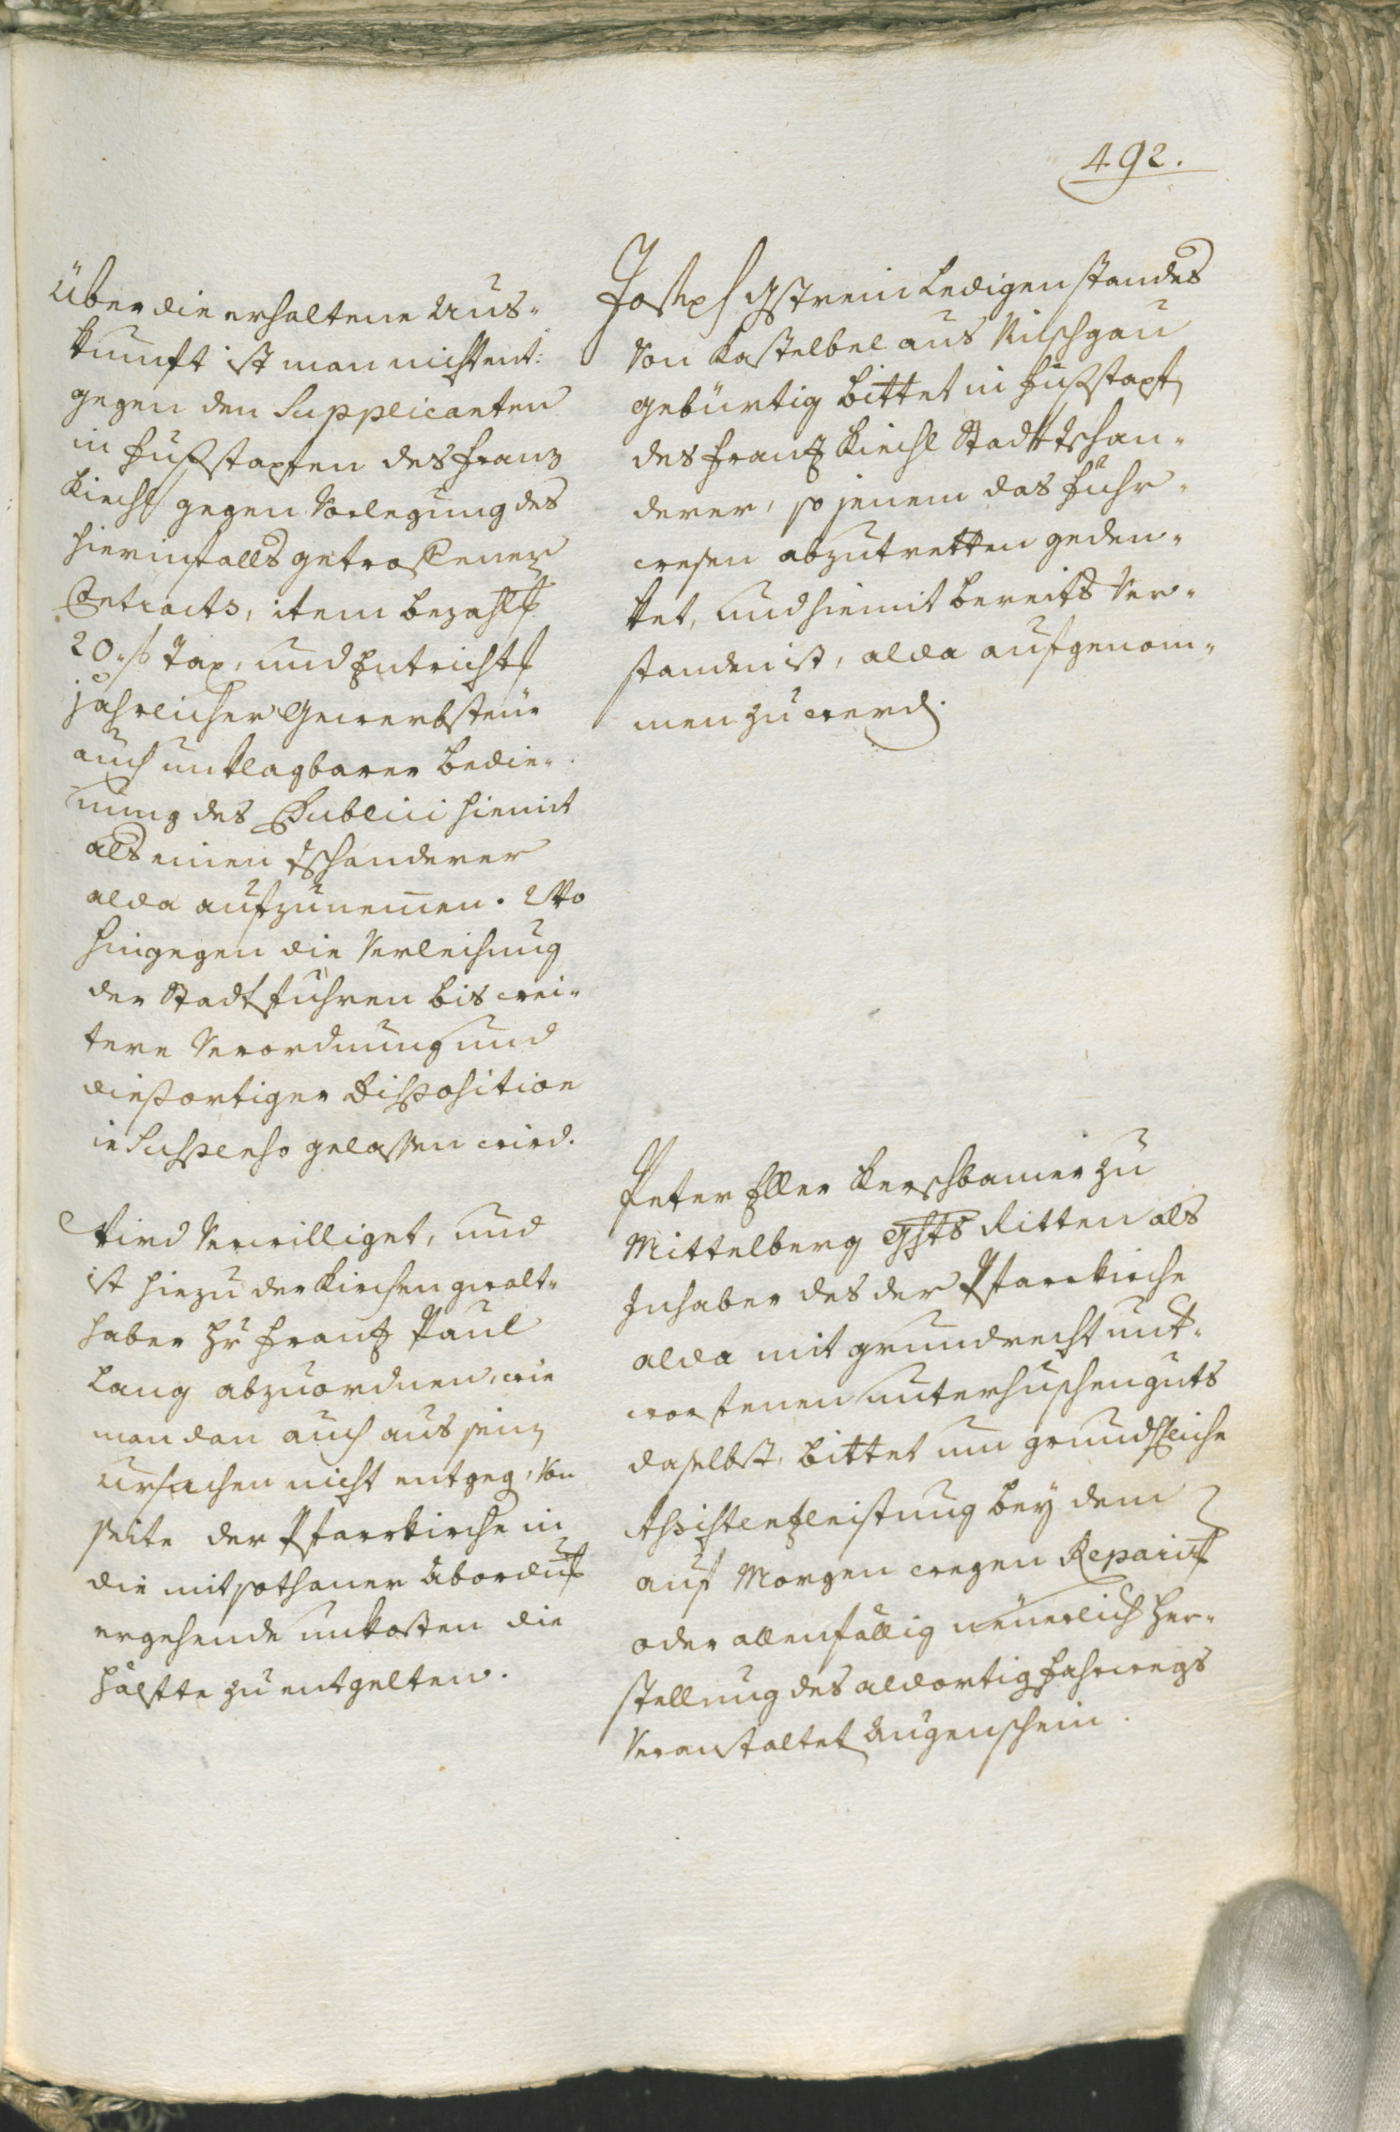 492.
Über die erhaltene Aus-
kunft ist man nicht ent-
gegen den Supplicanten
in fußstapfen des Franz
Kiechl gegen Vorlegung des
hierinfalls getroffenen
Contracts, item bezahlg
20 f Tax, und Entrichtg
jährlicher Gewerbsteur
auch unklagbarer bedie-
nung des Publici hiemit
als einen Tschanderer
alda aufzunemen. Wo
hingegen die Verleihung
der Stadtfuhren bis wei-
tere Verordnung und
diesortiger Disposition
in Suspenso gelassen wird.
Wird Verwilliget, und
ist hiezu der Kirchengwalt-
haber Hr Frantz Paul
Lang abzuordnen, wie
man dan auch aus sein
ursachen nicht entgeg, Von
seite der Pfarrkirche in
die mit sothaner Abordnug
ergehende unkosten die
hälfte zu entgelten.
Joseph Gstrein Ledigen standes
Von Kastelbel aus Vinschgau
gebürtig bittet in fußstapf
des Frantz Kiechl Stadttschan-
derer, so jenem das fuhr-
wesen abzutretten geden-
ket, und hiemit bereits Ver-
standen ist, alda aufgenom-
men zu werd.
Peter Eller Kerschbamer zu
Mittelberg Ghts Ritten als
Inhaber des der Pfarrkirche
alda mit grundrecht unt-
worfenen unterhuschenguts
daselbst, bittet um grundhl.
Assistenzleistung bey dem
auf Morgen wegen Reparirg
oder allenfällig neuerlich her-
stellung des aldortig fahrwegs
Veranstaltet Augenschein.